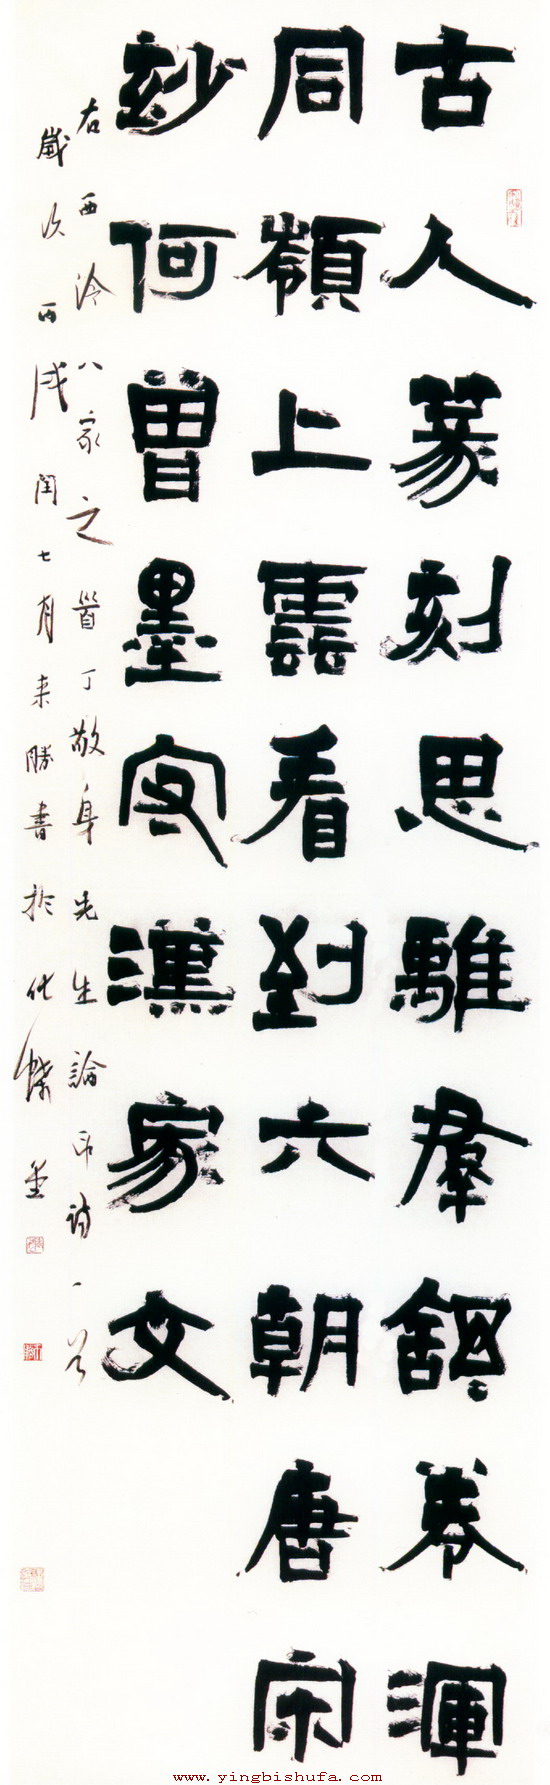 古人篆刻思離羣舒卷渾
同嶺上雲看到六朝唐宋
玅何曾墨守漢家文
右西泠八家之首丁敬身先生論印詩一首
歲次丙戌閏七月來勝書於化蝶堂
www.yingbishufa.com